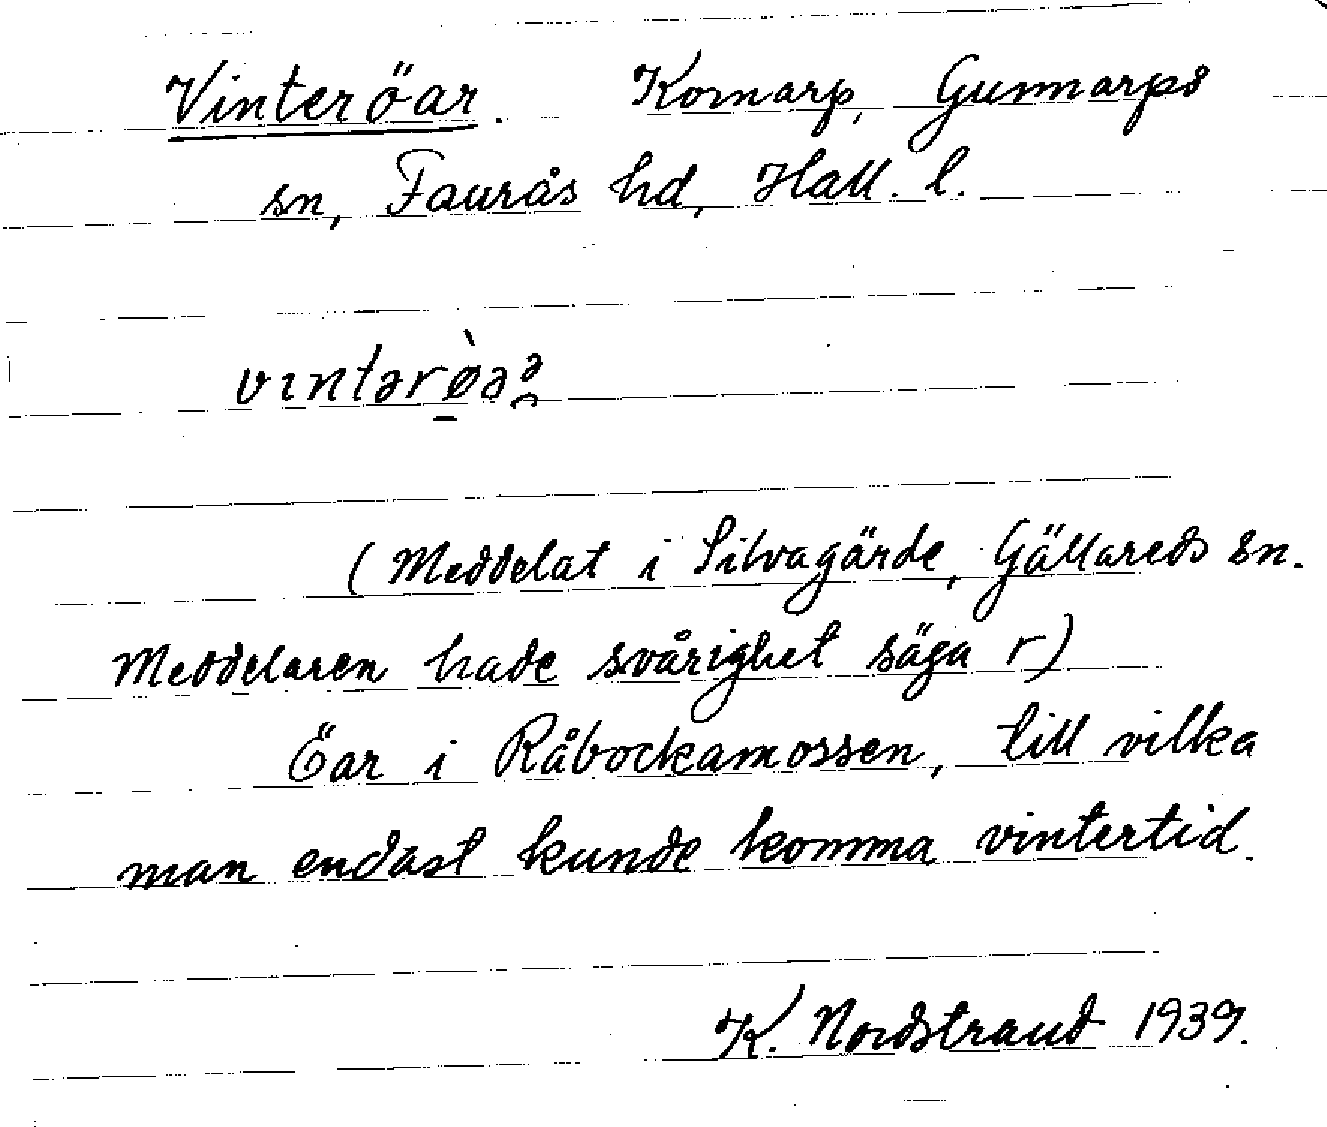 Vinteröar. Kornarp, Gunnarps
sn, Faurås hd, Hall. l.
vıntərø̀əə̯
(Meddelat i Silvagärde, Gällareds sn.
Meddelaren hade svårighet säga r)
Öar i Råbockamossen, till vilka
man endast kunde komma vintertid.
K. Nordstrand 1939.